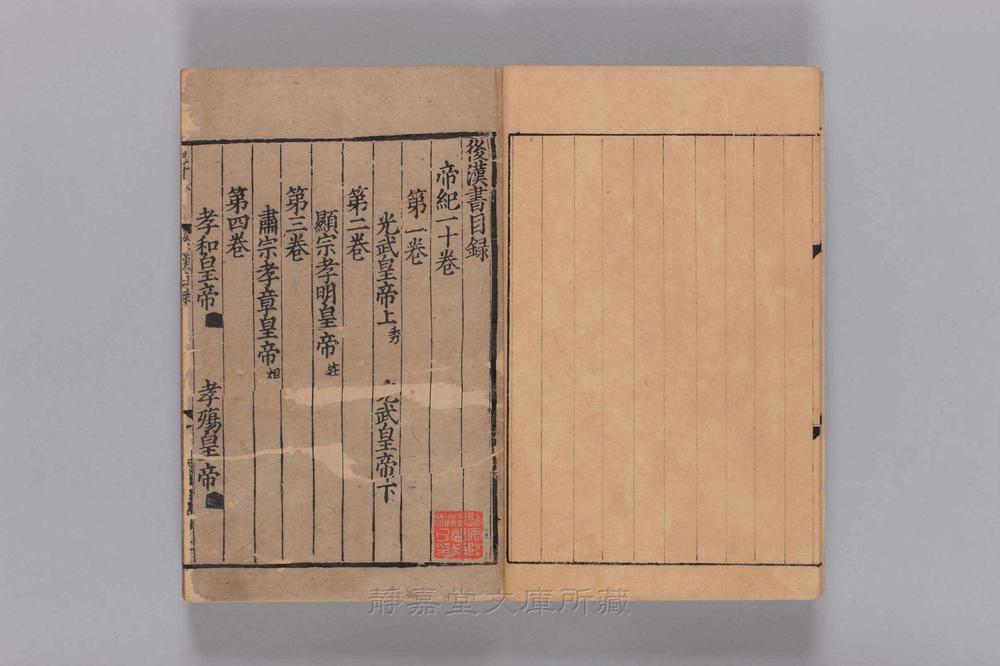 後漢書目録
帝紀一十卷
第一卷
光武皇帝上 秀 光武皇帝下
第二卷
顯宗孝明皇帝 莊
第三卷
肅宗孝章皇帝 炟
第四卷
孝和皇帝 孝殤皇帝
靜嘉堂文庫所藏